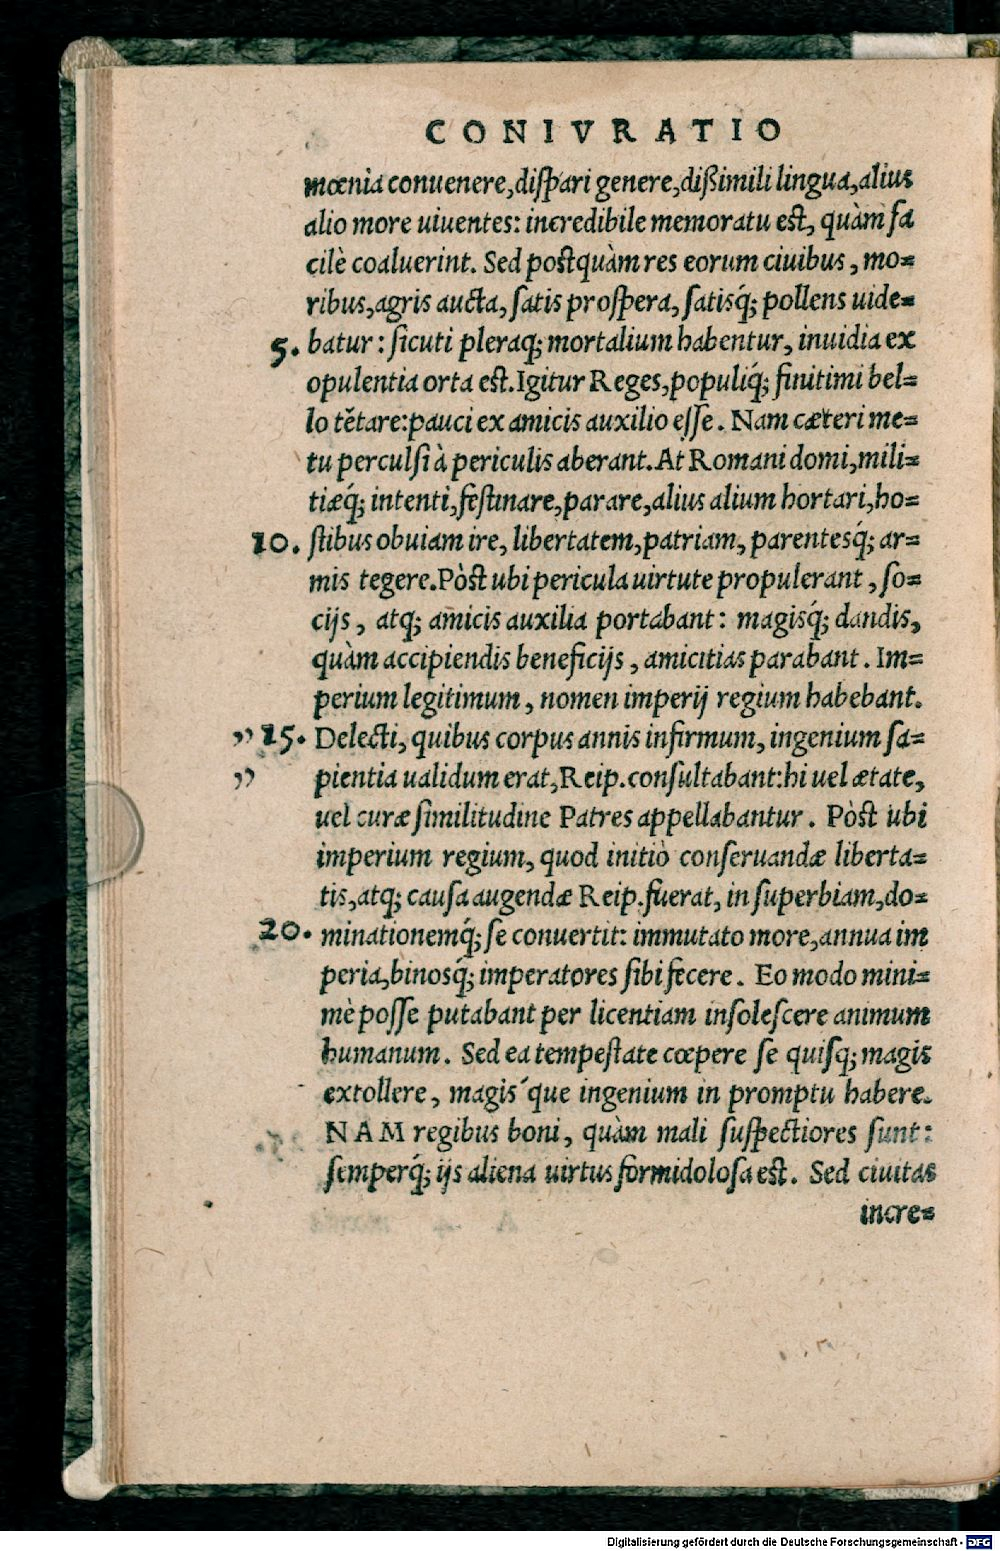 CONIVRATIO
mœnia conuenere, dispari genere, dißimili lingua, alius
alio more uiuentes: incredibile memoratu est, quàm fa
cilè coaluerint. Sed postquàm res eorum ciuibus, mo=
ribus, agris aucta, satis prospera, satisq́; pollens uide=
5. batur: sicuti pleraq; mortalium habentur, inuidia ex
opulentia orta est. Igitur Reges, populiq́; finitimi bel=
lo tẽtare: pauci ex amicis auxilio esse. Nam cæteri me=
tu perculsi à periculis aberant. At Romani domi, mili=
tiæq́; intenti, festinare, parare, alius alium hortari, ho=
10. stibus obuiam ire, libertatem, patriam, parentesq́; ar=
mis tegere. Pòst ubi pericula uirtute propulerant, so=
cijs, atq; amicis auxilia portabant: magisq́; dandis,
quàm accipiendis beneficijs, amicitias parabant. Im=
perium legitimum, nomen imperij regium habebant.
” 15. Delecti, quibus corpus annis infirmum, ingenium sa=
” pientia ualidum erat, Reip. consultabant: hi uel ætate,
uel curæ similitudine Patres appellabantur. Pòst ubi
imperium regium, quod initiò conseruandæ liberta=
tis, atq; causa augendæ Reip. fuerat, in superbiam, do=
20. minationemq́; se conuertit: immutato more, annua im
peria, binosq́; imperatores sibi fecere. Eo modo mini=
mè posse putabant per licentiam insolescere animum
humanum. Sed ea tempestate cœpere se quisq; magis
extollere, magis´que ingenium in promptu habere.
NAM regibus boni, quàm mali suspectiores sunt:
semperq́; ijs aliena uirtus formidolosa est. Sed ciuitas
incre=
Digitalisierung gefördert durch die Deutsche Forschungsgemeinschaft - DFG